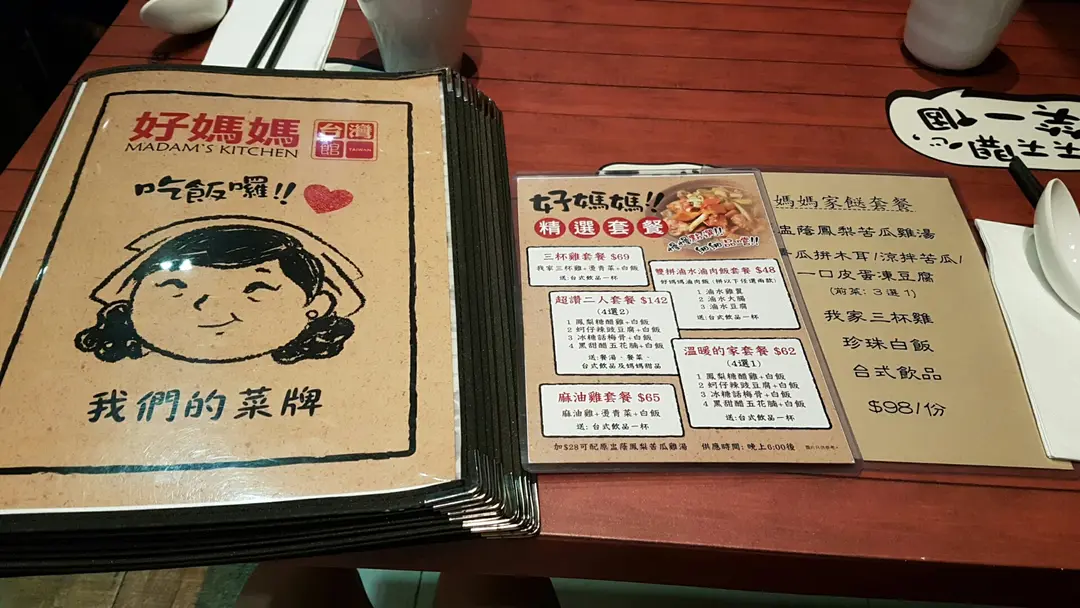 好媽媽
MADAM'S KITCHEN
台灣館
TAIWAN
吃飯囉!!
我們的菜牌
好媽媽!!
精選套餐
三杯雞套餐 $69
我家三杯雞+燙青菜+白飯
送:台式飲品一杯
超讚二人套餐 $142
(4選2)
1 鳳梨糖醋雞+白飯
2 蚵仔辣豉豆腐+白飯
3 冰糖話梅骨+白飯
4 黑甜醋五花腩+白飯
送:餐湯、餐菜、
台式飲品及媽媽甜品
麻油雞套餐 $65
麻油雞+燙青菜+白飯
送:台式飲品一杯
雙拼滷水滷肉飯套餐 $48
好媽媽滷肉飯(拼以下任選兩款)
1 滷水雞翼
2 滷水大腸
3 滷水豆腐
送:台式飲品一杯
溫暖的家套餐 $62
(4選1)
1 鳳梨糖醋雞+白飯
2 蚵仔辣豉豆腐+白飯
3 冰糖話梅骨+白飯
4 黑甜醋五花腩+白飯
送:台式飲品一杯
加$28可配原盅蔭鳳梨苦瓜雞湯 供應時間:晚上6:00後
媽媽家餸套餐
盅蔭鳳梨苦瓜雞湯
瓜拼木耳/涼拌苦瓜/
一口皮蛋凍豆腐
(前菜:3選1)
我家三杯雞
珍珠白飯
台式飲品
$98/份
天天開心
笑一個